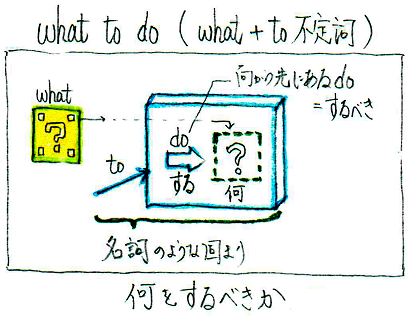 what to do ( what + to 不定詞 )
向かう先にあるdo
=するべき
what
?
do
する
?
何
to
名詞のような固まり
何をするべきか